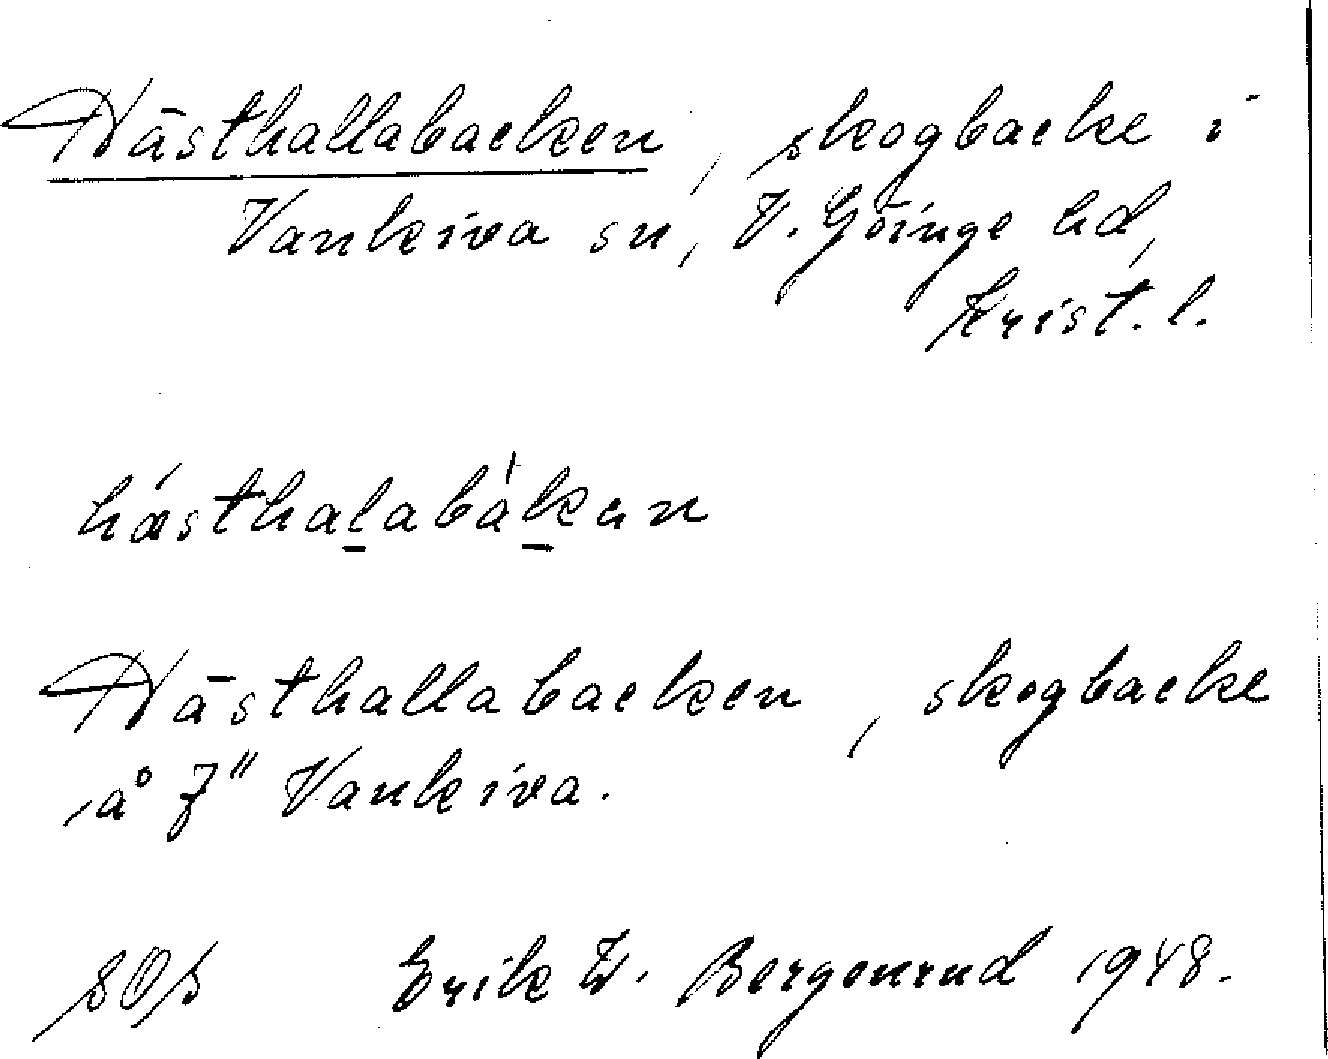 Hästhallabacken, skogbacke i
Vankiva sn, V. Göinge hd,
Krist. l.
hásthalabákan
Hästhallabacken, skogbacke
å 7" Vankiva.
SOS Erik W. Bergenrud 1948.